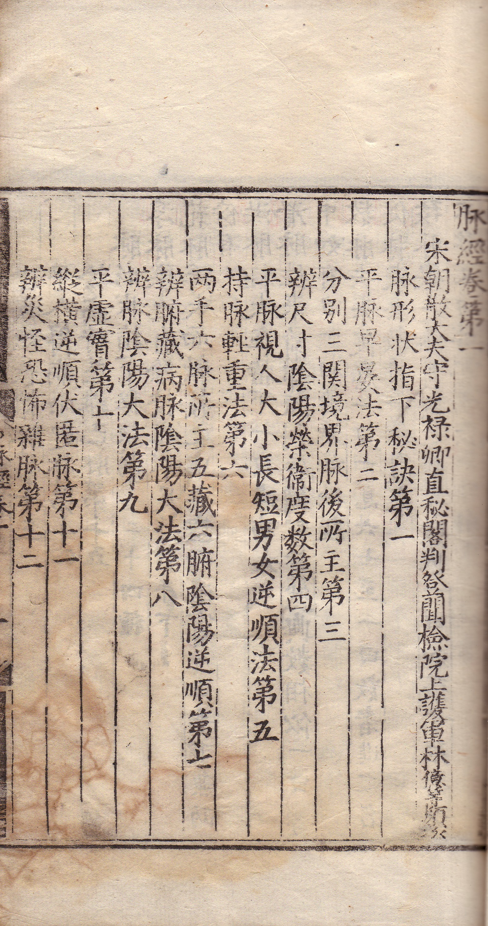 脉經卷第一
宋朝散大夫守光祿卿直秘閣判登聞檢院上護軍林億等類次
脉形狀指下秘訣第一
平脉早晏法第二
分别三関境界脉後所主第三
辨尺寸陰陽榮衛度数第四
平脉視人大小長短男女逆順法第五
持脉輕重法第六
两手六脉所主五藏六腑陰陽逆順第七
辨腑藏病脉陰陽大法第八
辨脉陰陽大法第九
平虚實第十
縱橫逆順伏匿脉第十一
辨災怪恐怖雜脉第十二
脉經卷一